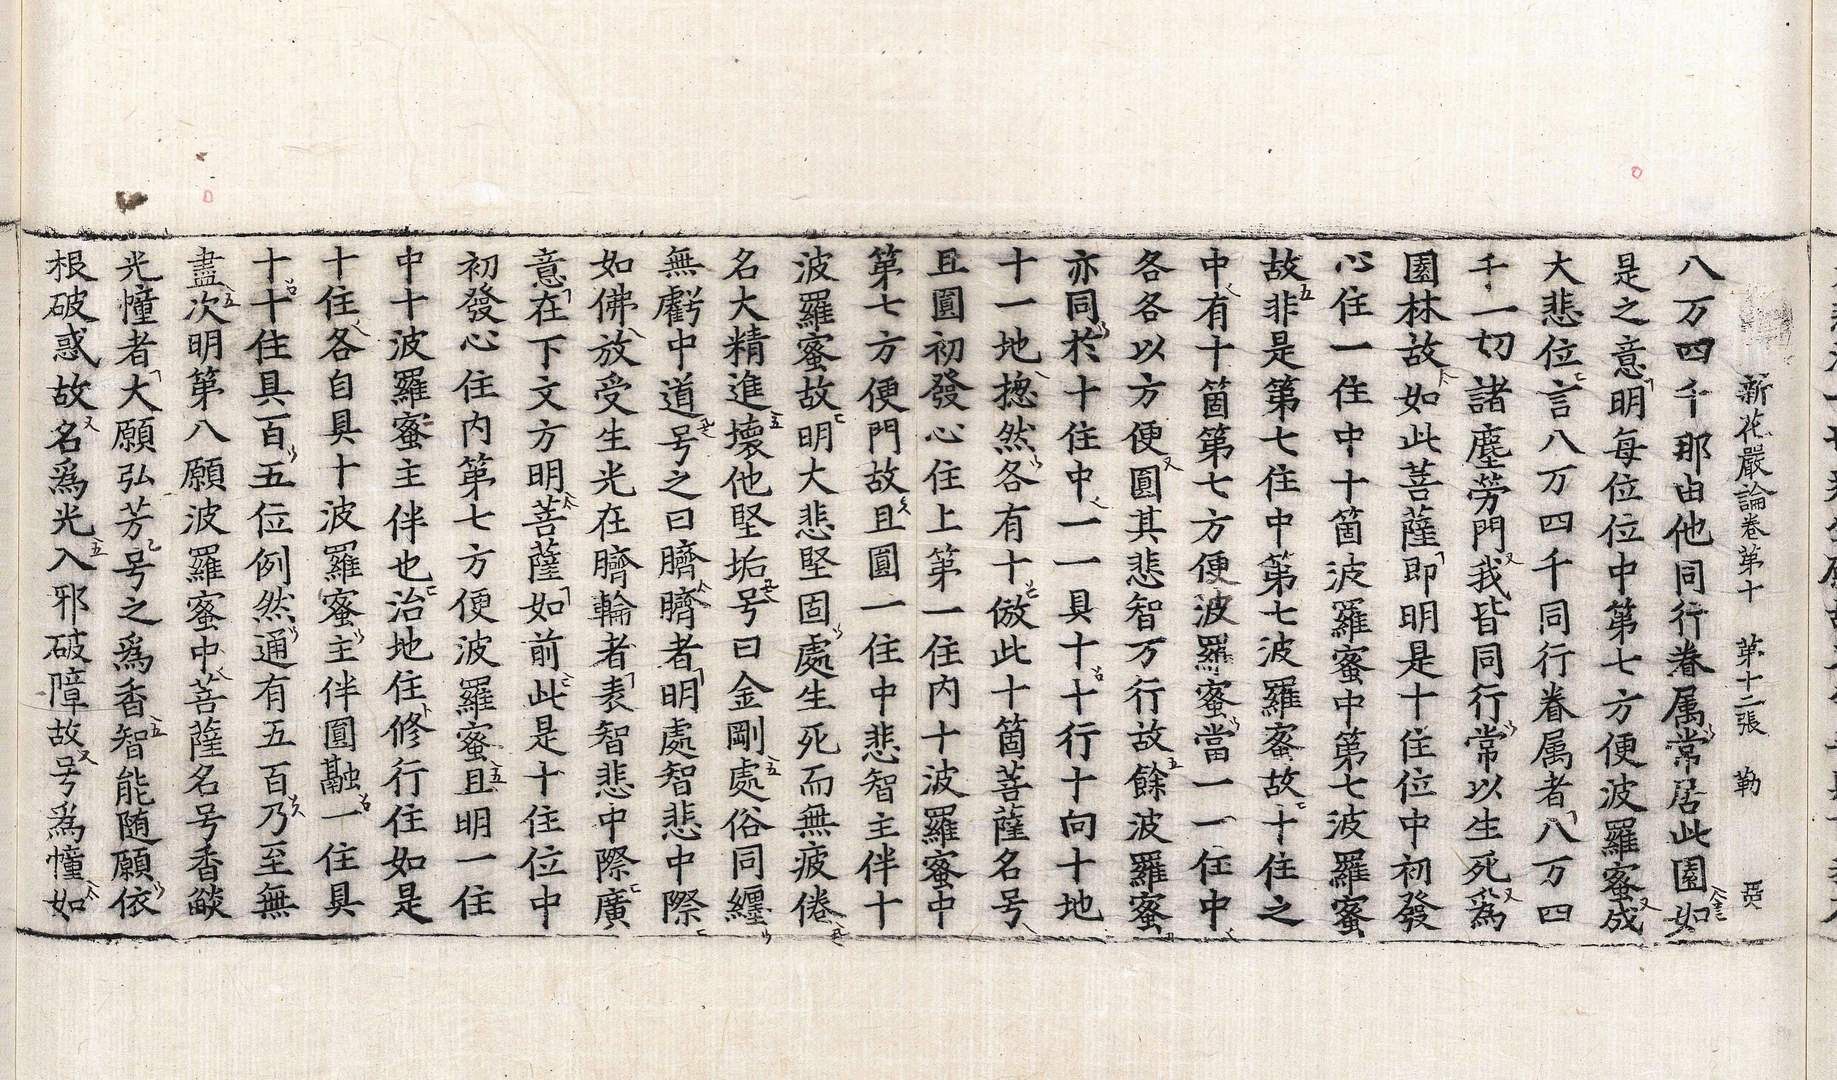 新花嚴論卷第十 第十二張 勒
八万四千那由他同行眷属常居此園如
是之意明每位位中第七方便波羅蜜成
大悲位言八万四千同行眷属者八万四
千一切諸塵勞門我皆同行常以生死爲
園林故如此菩薩即明是十住位中初發
心住一住中十箇波羅蜜中第七波羅蜜
故非是第七住中第七波羅蜜故十住之
中有十箇第七方便波羅蜜當一一住中
各各以方便圓其悲智万行故餘波羅蜜
亦同於十住中一一具十十行十向十地
十一地揔然各有十倣此十箇菩薩名号
且圓初發心住上第一住内十波羅蜜中
第七方便門故且圓一住中悲智主伴十
波羅蜜故明大悲堅固處生死而無疲倦
名大精進壞他堅垢号曰金剛處俗同纏
無虧中道号之曰臍臍者明處智悲中際
如佛放受生光在臍輪者表智悲中際廣
意在下文方明菩薩如前此是十住位中
初發心住内第七方便波羅蜜且明一住
中十波羅蜜主伴也治地住修行住如是
十住各自具十波羅蜜主伴圓融一住具
十十住具百五位例然通有五百乃至無
盡次明第八願波羅蜜中菩薩名号香燄
光幢者大願弘芳号之爲香智能随願依
根破惑故名爲光入邪破障故号爲幢如